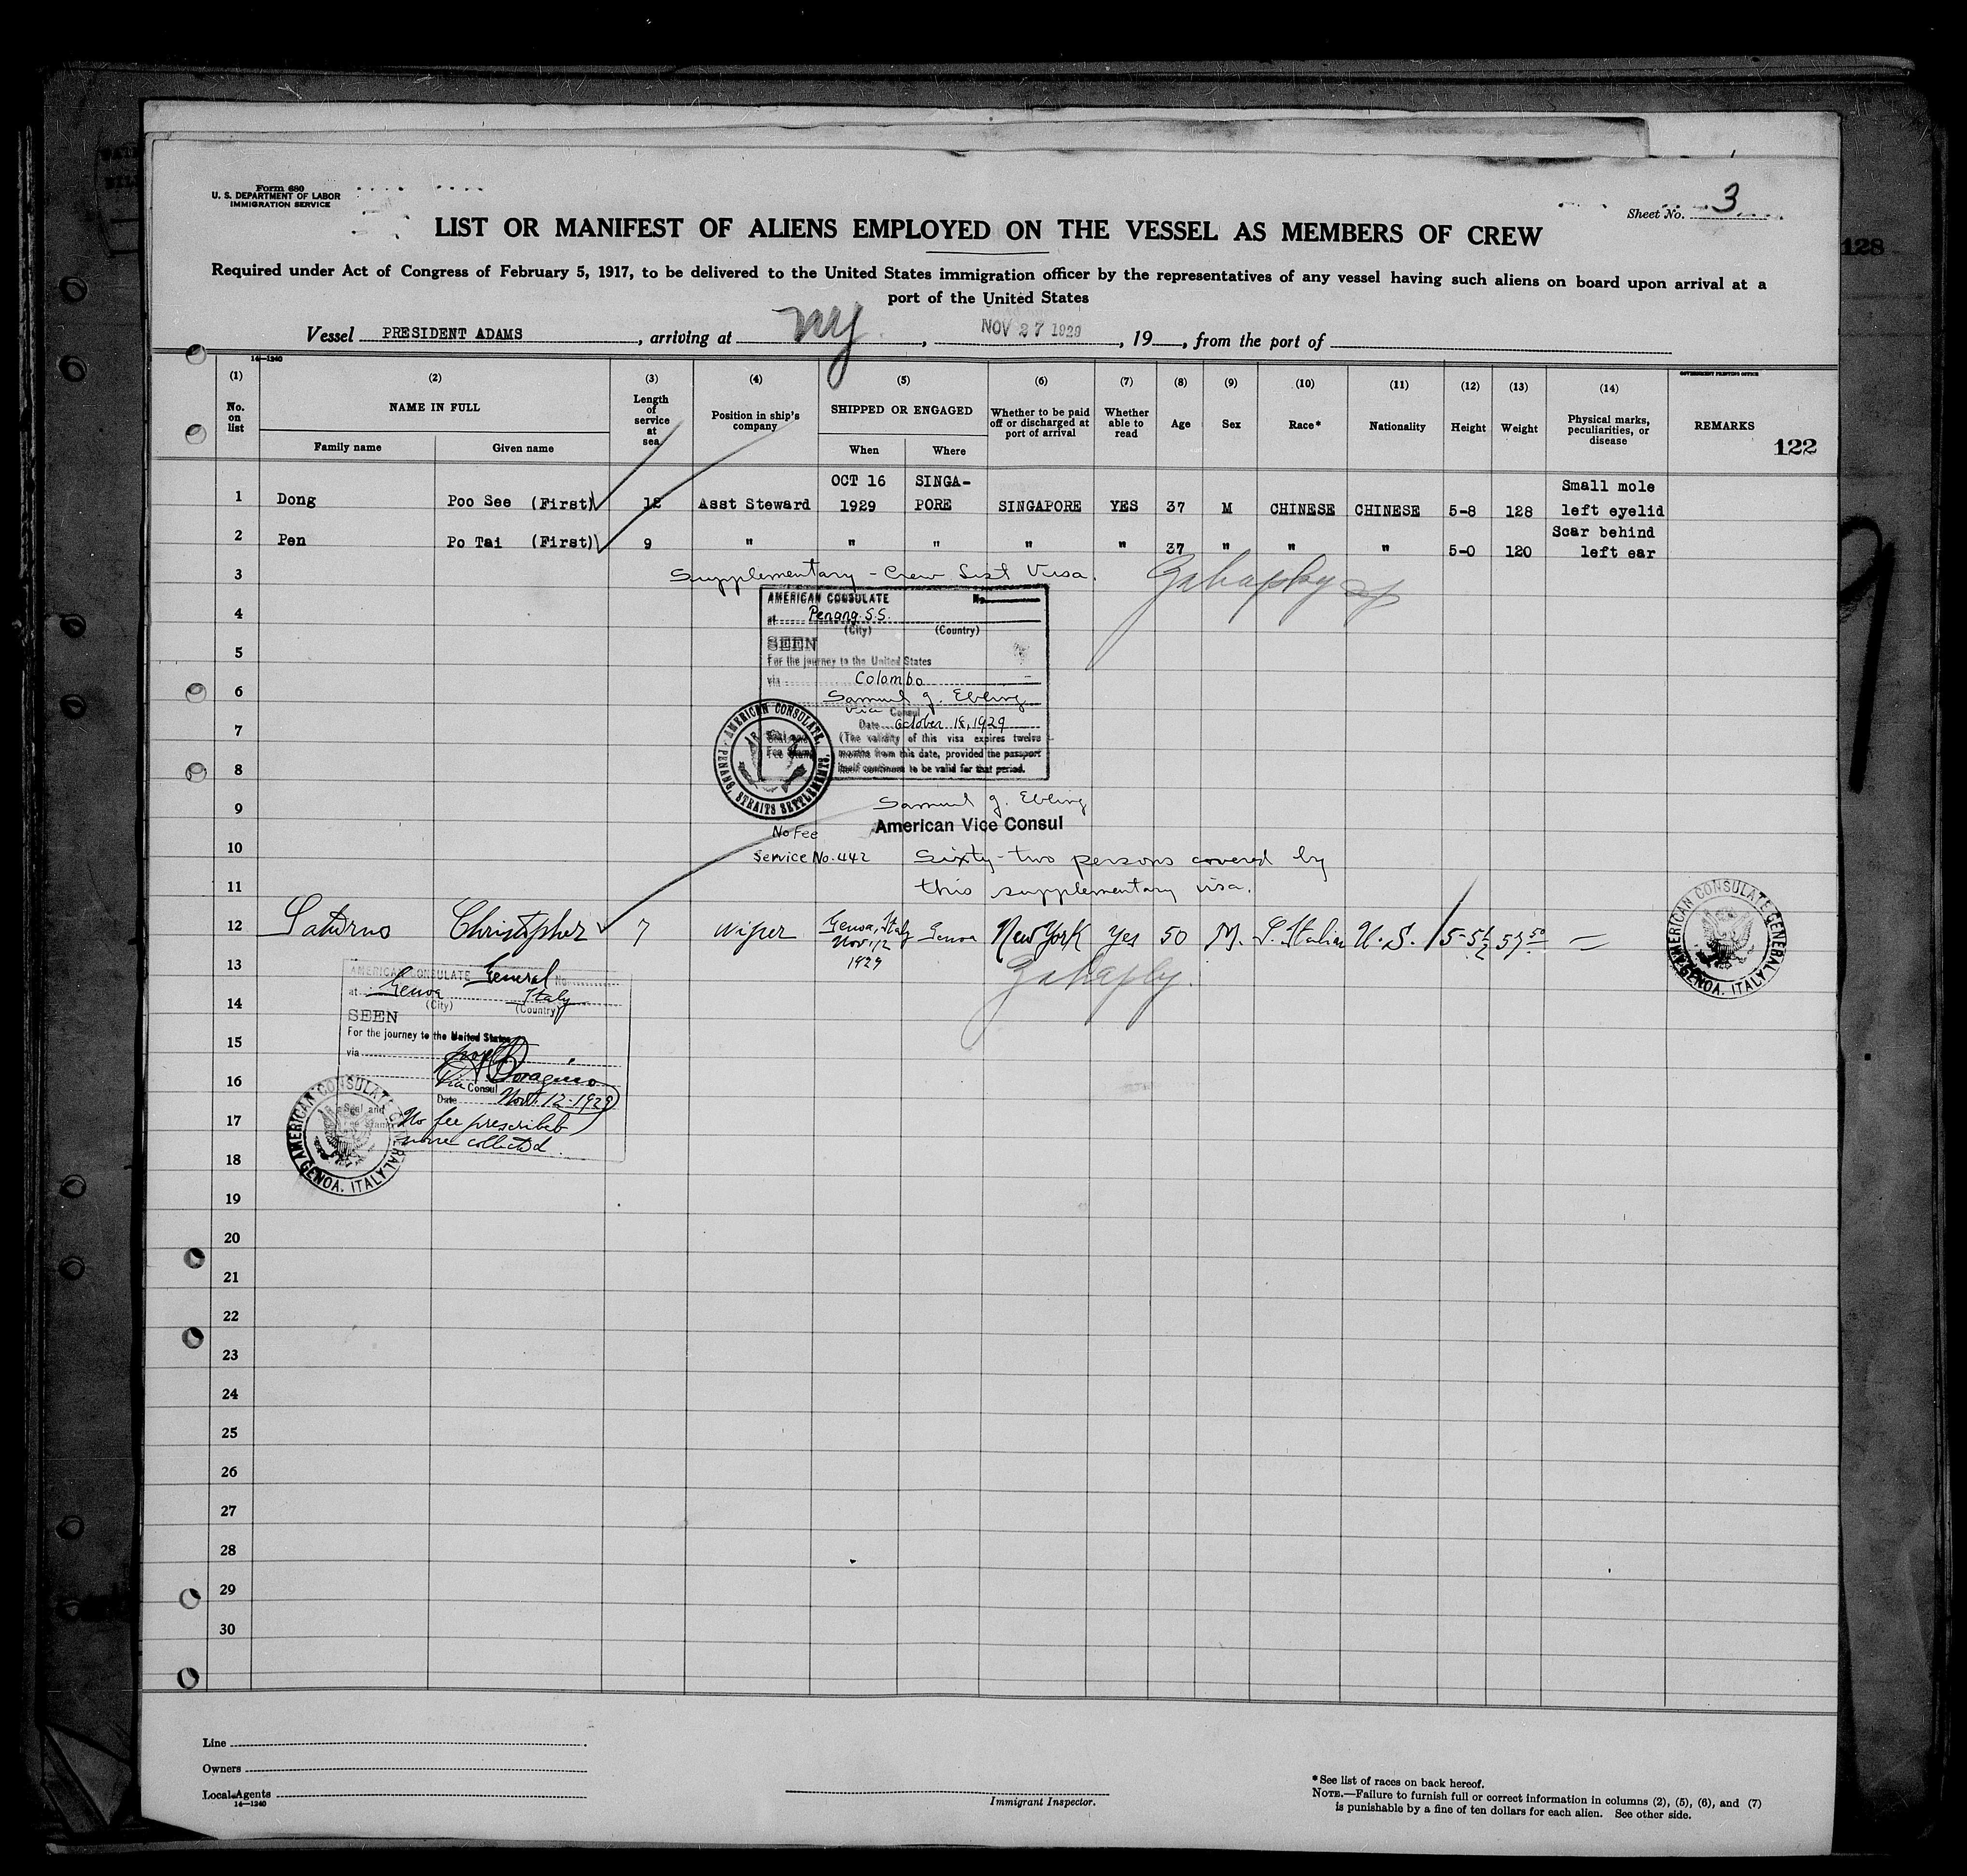 Form 680
U. S. DEPARTMENT OF LABOR
IMMIGRATION SERVICE
Sheet No. 3
LIST OR MANIFEST OF ALIENS EMPLOYED ON THE VESSEL AS MEMBERS OF CREW
128
Required under Act of Congress of February 5, 1917, to be delivered to the United States immigration officer by the representatives of any vessel having such aliens on board upon arrival at a
port of the United States
Vessel PRESIDENT ADAMS, arriving at NY, NOV 27 1929, 19, from the port of
14—1240
GOVERNMENT PRINTING OFFICE
(1) (2) (3) (4) (5) (6) (7) (8) (9) (10) (11) (12) (13) (14)
No. on list
NAME IN FULL
Family name
Given name
Length of service at sea
Position in ship's company
SHIPPED OR ENGAGED
When
Where
Whether to be paid off or discharged at port of arrival
Whether able to read
Age
Sex
Race*
Nationality
Height
Weight
Physical marks, peculiarities, or disease
REMARKS
122
1 Dong Poo See (First) 12 Asst Steward OCT 16 1929 SINGA-PORE SINGAPORE YES 37 M CHINESE CHINESE 5-8 128 Small mole left eyelid
2 Pen Po Tai (First) 9 " " " " " 37 " " " 5-0 120 Scar behind left ear
3 Supplementary - Crew List Visa.
AMERICAN CONSULATE No.
4
at Penang S.S.
(City) (Country)
SEEN
5
For the journey to the United States
6
via Colombo
Samuel G. Ebling
Vice Consul
7
Date October 18, 1929
(The validity of this visa expires twelve
months from this date, provided the passport
itself continues to be valid for that period.
Seal and
Fee Stamp
AMERICAN CONSULATE, PENANG, STRAITS SETTLEMENTS.
8
9
Samuel G. Ebling
No Fee American Vice Consul
10
Service No. 442 Sixty-two persons covered by
11
this supplementary visa.
12 Saturno Christopher 7 Wiper Genoa, Italy Nov. 12 1929 Genoa New York Yes 50 M. S. Italian U. S. 5-5½
AMERICAN CONSULATE GENERAL GENOA. ITALY
13
AMERICAN CONSULATE General No.
at Genoa Italy
(City) (Country)
14
SEEN
For the journey to the United States
15
via
16
Vice Consul
Date Nov. 12-1929
Seal and
17
No fee prescribed
none collected.
AMERICAN CONSULATE GENERAL GENOA. ITALY
18
19
20
21
22
23
24
25
26
27
28
29
30
Line
Owners
Local Agents
14—1240
Immigrant Inspector.
*See list of races on back hereof.
NOTE.—Failure to furnish full or correct information in columns (2), (5), (6), and (7)
is punishable by a fine of ten dollars for each alien. See other side.